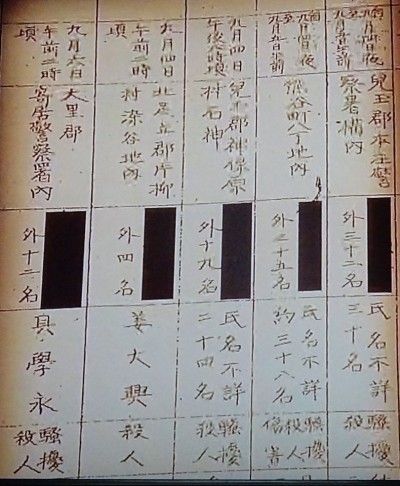 自九月四日夜
至九月五日午前
兒玉郡本庄警
察署構内
外三十二名
氏名不詳
三十名
騒擾
殺人
自九月四日夜
至九月五日
熊谷町八丁地内
外三十五名
氏名不詳
約三十八名
騒擾
殺人
傷害
九月四日
午後八時頃
兒玉郡神保原
村石神
外十九名
氏名不詳
二十四名
騒擾
殺人
九月四日
午前二時
頃
北足立郡片柳
村染谷地内
外四名
姜大興
殺人
九月六日
午前二時
頃
大里郡
寄居警察署内
外十二名
具學永
騒擾
殺人